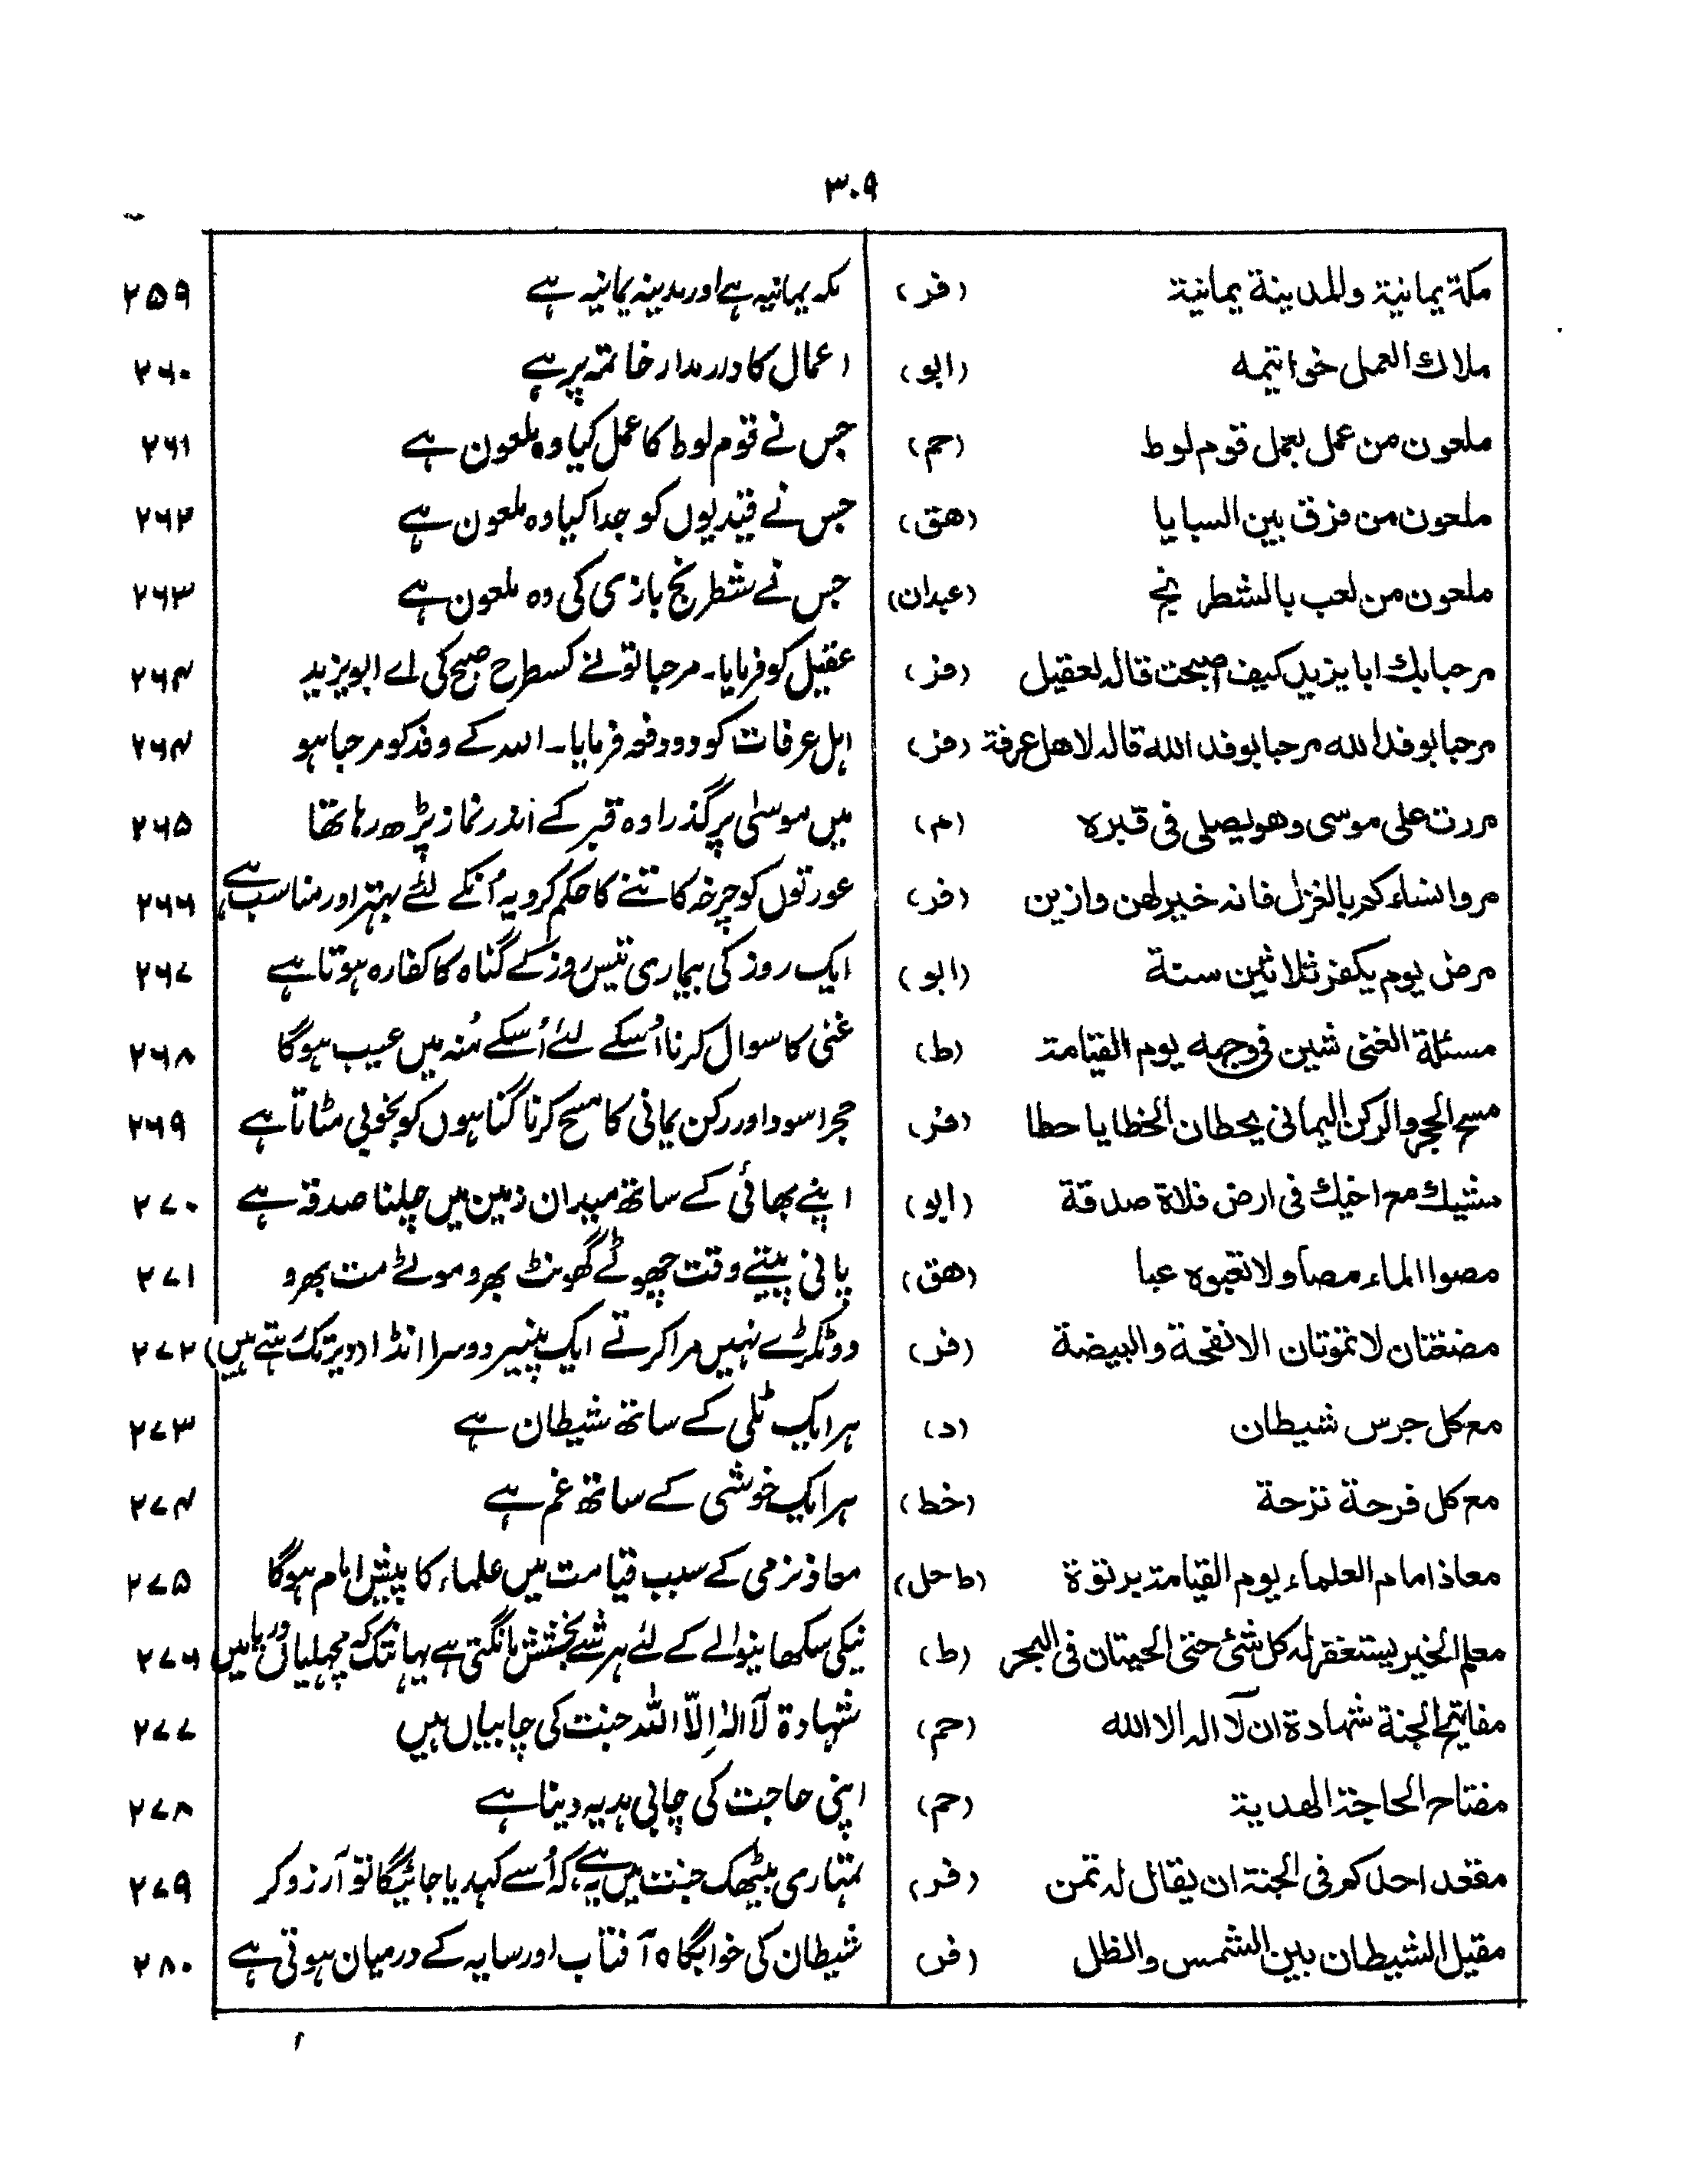 ۳۰۹
مکة یمانیة والمدینة یمانیة (فر) مکہ یمانیہ ہے اور مدینہ یمانیہ ہے ۲۵۹
ملاك العمل خواتیمه (ابو) اعمال کا دارمدار خاتمہ پر ہے ۲۶۰
ملعون من عمل بعمل قوم لوط (حم) جس نے قوم لوط کا عمل کیا وہ ملعون ہے ۲۶۱
ملعون من فرق بین السبایا (هق) جس نے قیدیوں کو جدا کیا وہ ملعون ہے ۲۶۲
ملعون من لعب بالشطرنج (عبدان) جس نے شطرنج بازی کی وہ ملعون ہے ۲۶۳
مرحبا بك ابا یزید کیف اصبحت قاله لعقیل (فر) عقیل کو فرمایا۔ مرحبا تونے کسطرح صبح کی اے ابویزید ۲۶۴
مرحبا بوفد الله مرحبا بوفد الله قاله لاهل عرفة (فر) اہل عرفات کو دو دفعہ فرمایا۔ اللہ کے وفد کو مرحبا ہو ۲۶۴
مررت علی موسی وهو یصلی فی قبره (م) میں موسیٰ پر گذرا وہ قبر کے اندر نماز پڑھ رہا تھا ۲۶۵
مروا نساء کم بالغزل فانه خیر لهن وازین (فر) عورتوں کو چرخہ کاتنے کا حکم کرو یہ اُنکے لئے بہتر اور مناسب ہے ۲۶۶
مرض یوم یکفر ثلاثین سنة (ابو) ایک روز کی بیماری تیس روز کے گناہ کا کفارہ ہوتا ہے ۲۶۷
مسئلة الغنی شین فی وجهه یوم القیامة (ط) غنی کا سوال کرنا اُسکے لئے اُسکے مُنہ میں عیب ہوگا ۲۶۸
مسح الحجر والرکن الیمانی یحطان الخطایا حطا (فر) حجر اسود اور رکن یمانی کا مسح کرنا گناہوں کو بخوبی مٹاتا ہے ۲۶۹
مشیك مع اخیك فی ارض فلاة صدقة (ابو) اپنے بھائی کے ساتھ میدان زمین میں چلنا صدقہ ہے ۲۷۰
مصوا الماء مصا ولا تعبوه عبا (هق) پانی پیتے وقت چھوٹے گھونٹ بھرو موٹے مت بھرو ۲۷۱
مضغتان لا تموتان الانفحة والبیضة (فر) دو ٹکڑے نہیں مرا کرتے ایک پنیر دوسرا انڈا (دیر تک رہتے ہیں) ۲۷۲
مع کل جرس شیطان (د) ہر ایک ٹلی کے ساتھ شیطان ہے ۲۷۳
مع کل فرحة نزحة (خط) ہر ایک خوشی کے ساتھ غم ہے ۲۷۴
معاذ امام العلماء یوم القیامة برتوة (ط حل) معاذ نرمی کے سبب قیامت میں علماء کا پیش امام ہوگا ۲۷۵
معلم الخیر یستغفر له کل شئ حتی الحیتان فی البحر (ط) نیکی سکھانیوالے کے لئے ہر شے بخشش مانگتی ہے یہانتک کہ مچھلیاں دریا میں ۲۷۶
مفاتیح الجنة شهادة ان لآ اله الا الله (حم) شہادۃ لآ الہٰ اِلّا اللہ جنت کی چابیاں ہیں ۲۷۷
مفتاح الحاجة الهدیة (حم) اپنی حاجت کی چابی ہدیہ دینا ہے ۲۷۸
مقعد احدکم فی الجنة ان یقال له تمن (فر) تمہاری بیٹھک جنت میں یہ ہے، کہ اُسے کہدیا جائیگا تو آرزو کر ۲۷۹
مقیل الشیطان بین الشمس والظل (فر) شیطان کی خوابگاہ آفتاب اور سایہ کے درمیان ہوتی ہے ۲۸۰